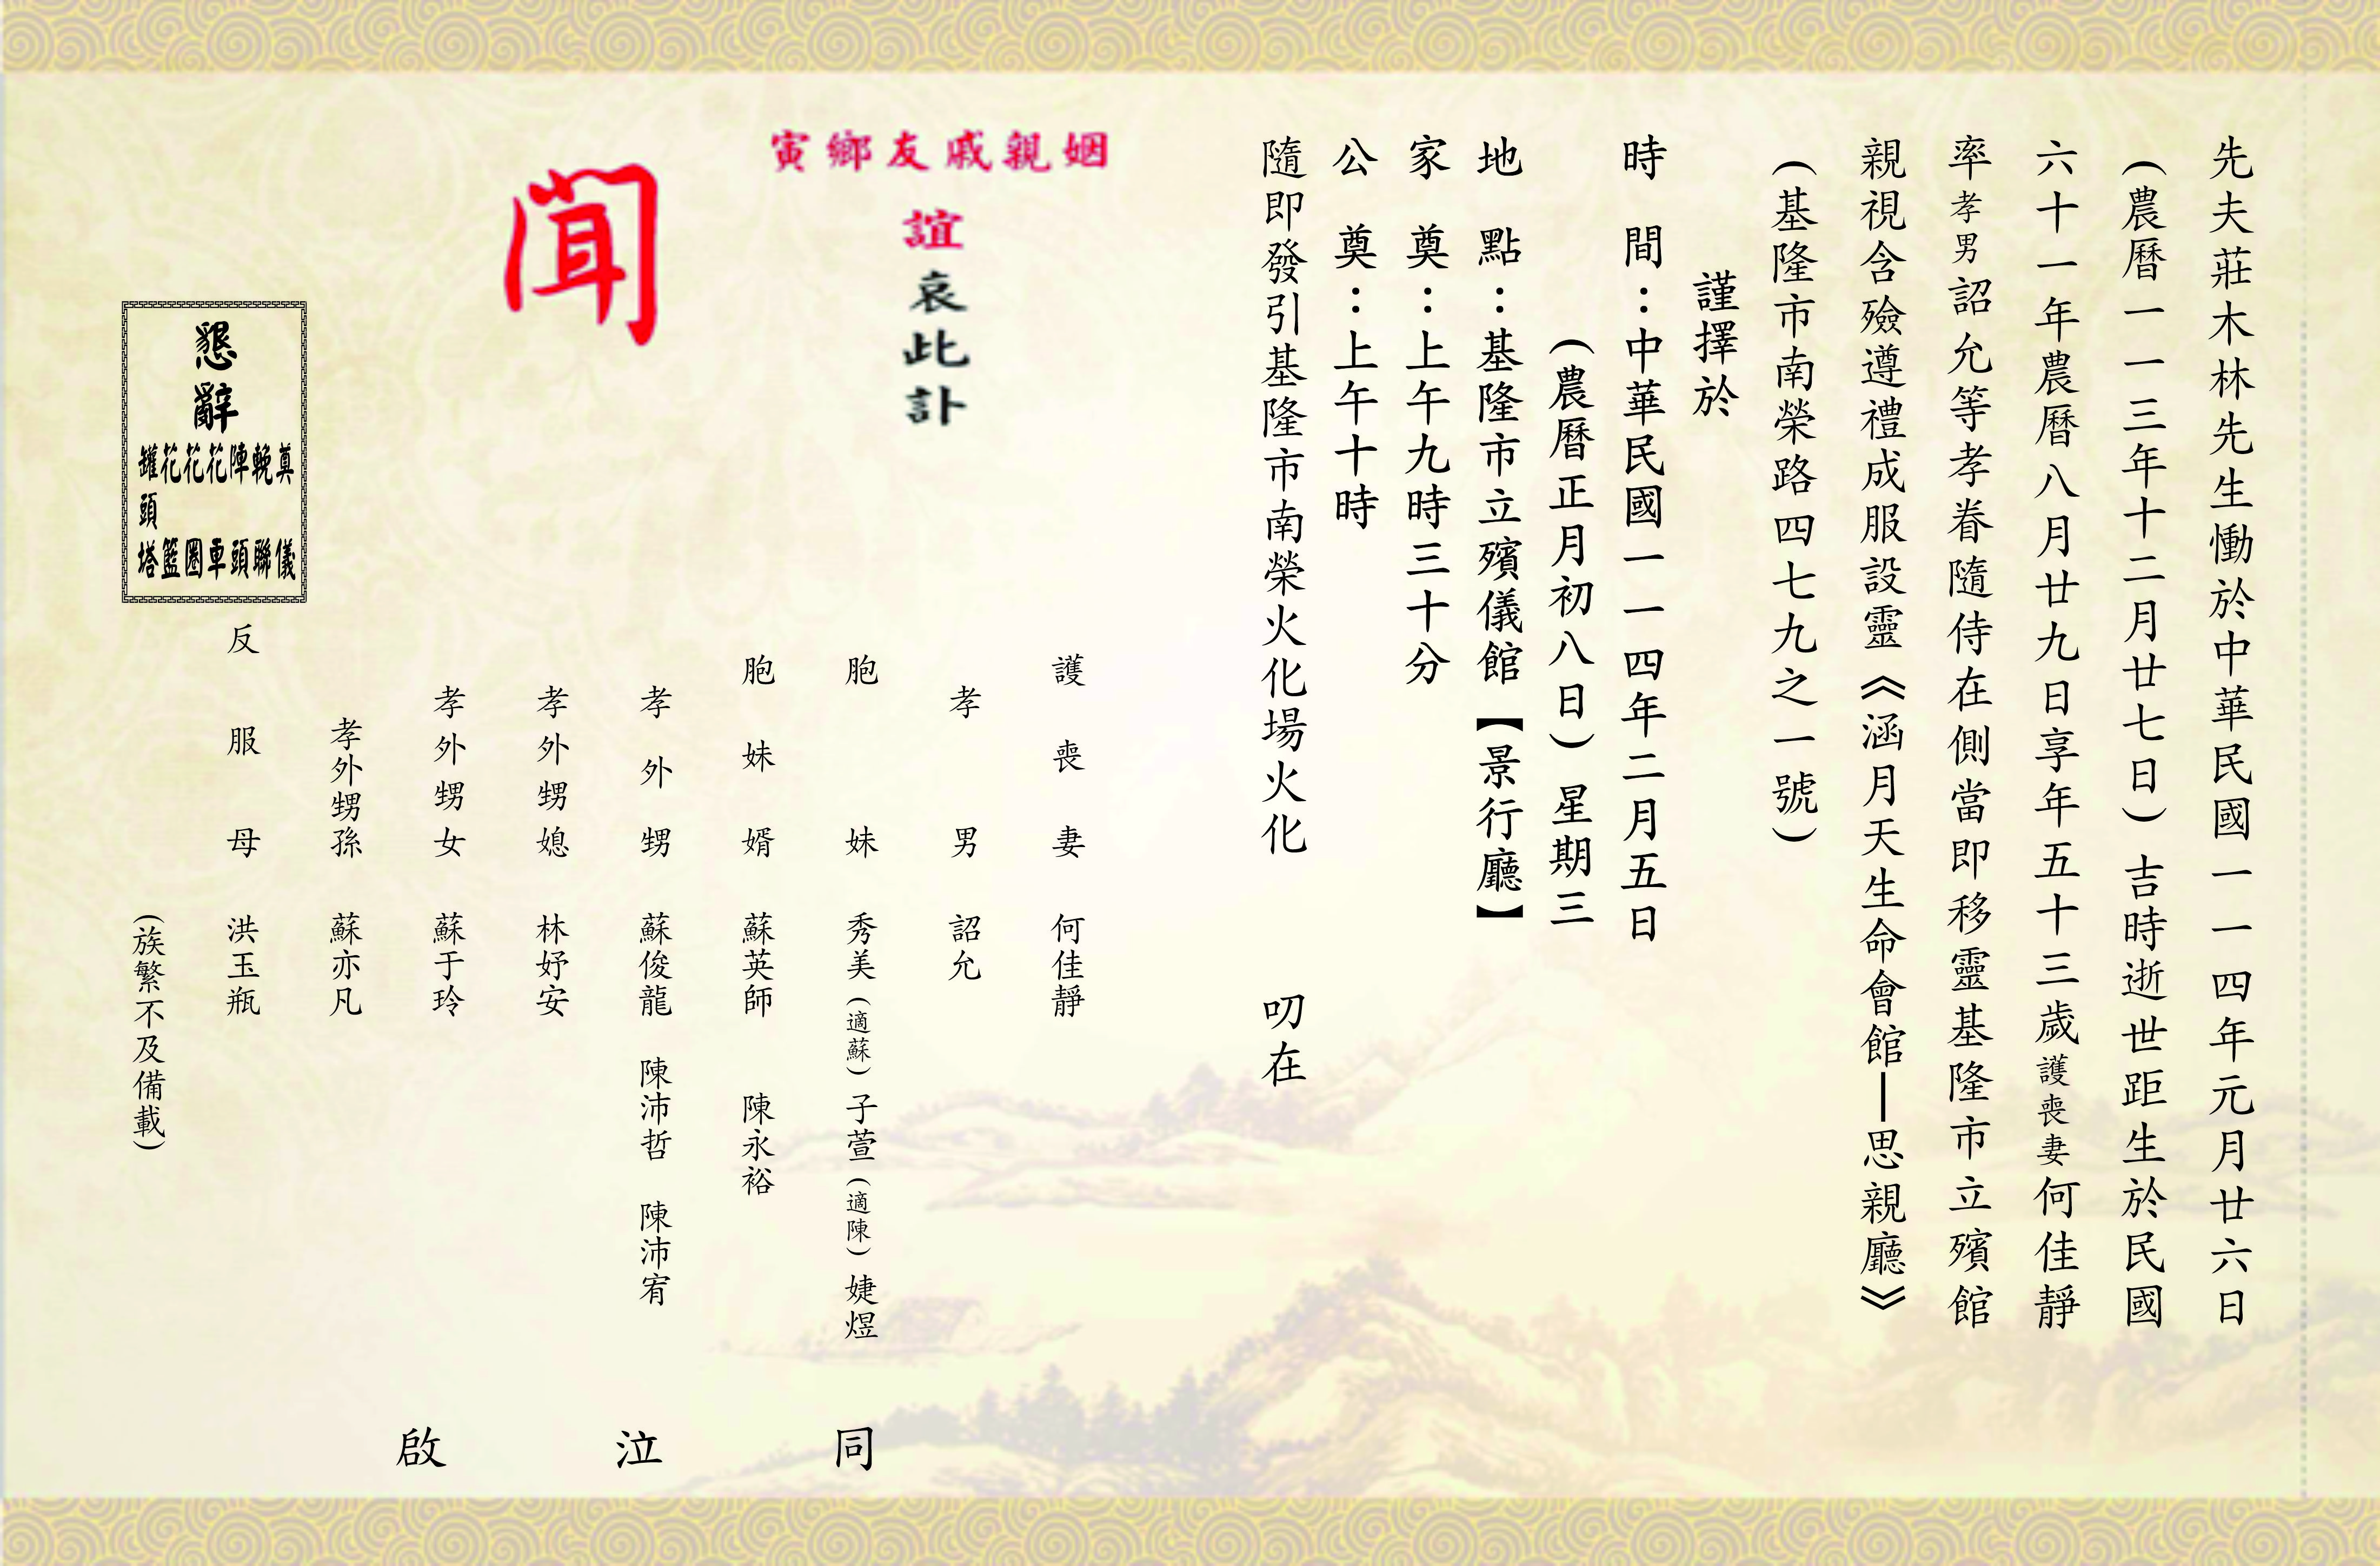 先夫莊木林先生慟於中華民國一一四年元月廿六日
(農曆一一三年十二月廿七日)吉時逝世距生於民國
六十一年農曆八月廿九日享年五十三歲護喪妻何佳靜
率孝男詔允等孝眷隨侍在側當即移靈基隆市立殯館
親視含殮遵禮成服設靈《涵月天生命會館—思親廳》
(基隆市南榮路四七九之一號)
謹擇於
時間：中華民國一一四年二月五日
(農曆正月初八日)星期三
地點：基隆市立殯儀館【景行廳】
家奠：上午九時三十分
公奠：上午十時
隨即發引基隆市南榮火化場火化 叨在
姻親戚友鄉寅
誼哀此訃
聞
護喪妻 何佳靜
孝男 詔允
胞妹 秀美(適蘇)子萱(適陳)婕煜
胞妹婿 蘇英師 陳永裕
孝外甥 蘇俊龍 陳沛哲 陳沛宥
孝外甥媳 林妤安
孝外甥女 蘇于玲
孝外甥孫 蘇亦凡
反服母 洪玉瓶
(族繁不及備載)
同泣啟
懇辭
奠儀
輓聯
陣頭
花車
花圈
花籃
罐頭塔